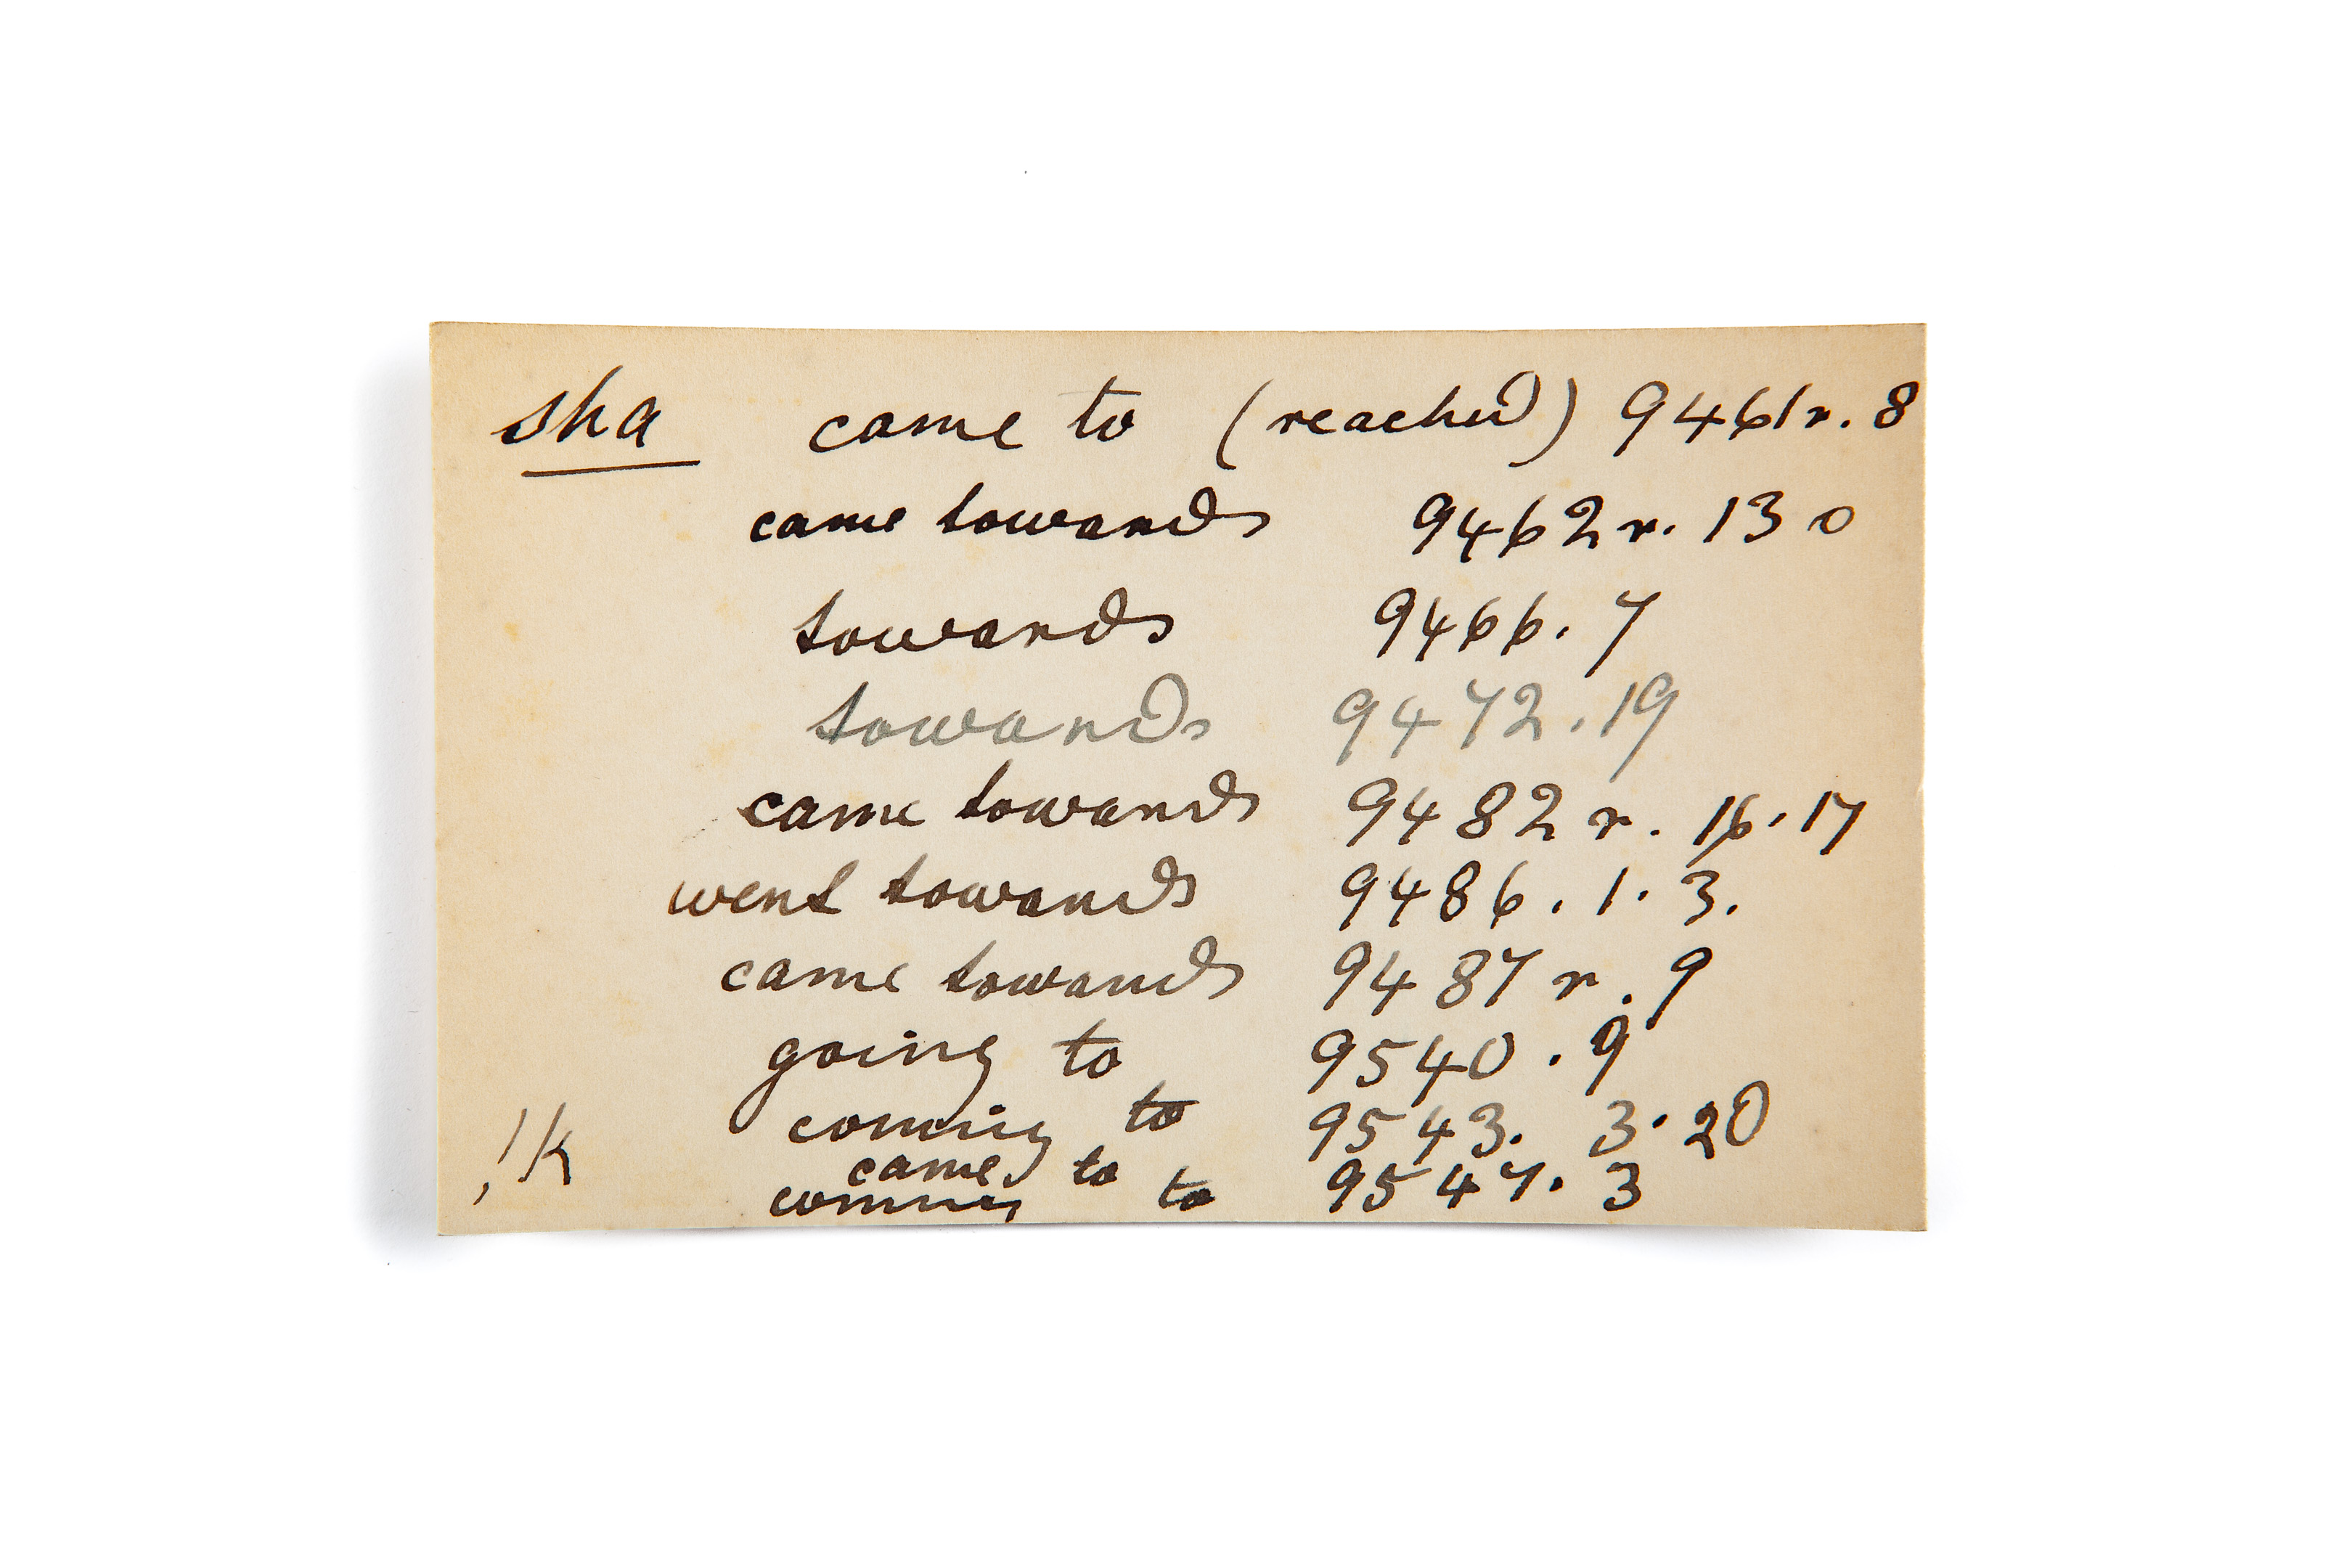 sha came to (reached) 9461r. 8
came towards 9462r. 13 0
towards 9466. 7
towards 9472. 19
came towards 9482 r. 16. 17
went towards 9486. 1. 3.
came towards 9487 r. 9
going to 9540. 9
!k coming to 9543. 3. 20
came to
coming to 9547. 3